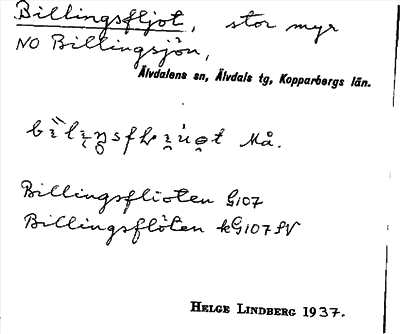 Billingsfljot, stor myr
NO Billingsjön,
Älvdalens sn, Älvdals tg, Kopparbergs län.
Må.
Billingsflioten G107
Billingsflöten kG107 SV
HELGE LINDBERG 1937.